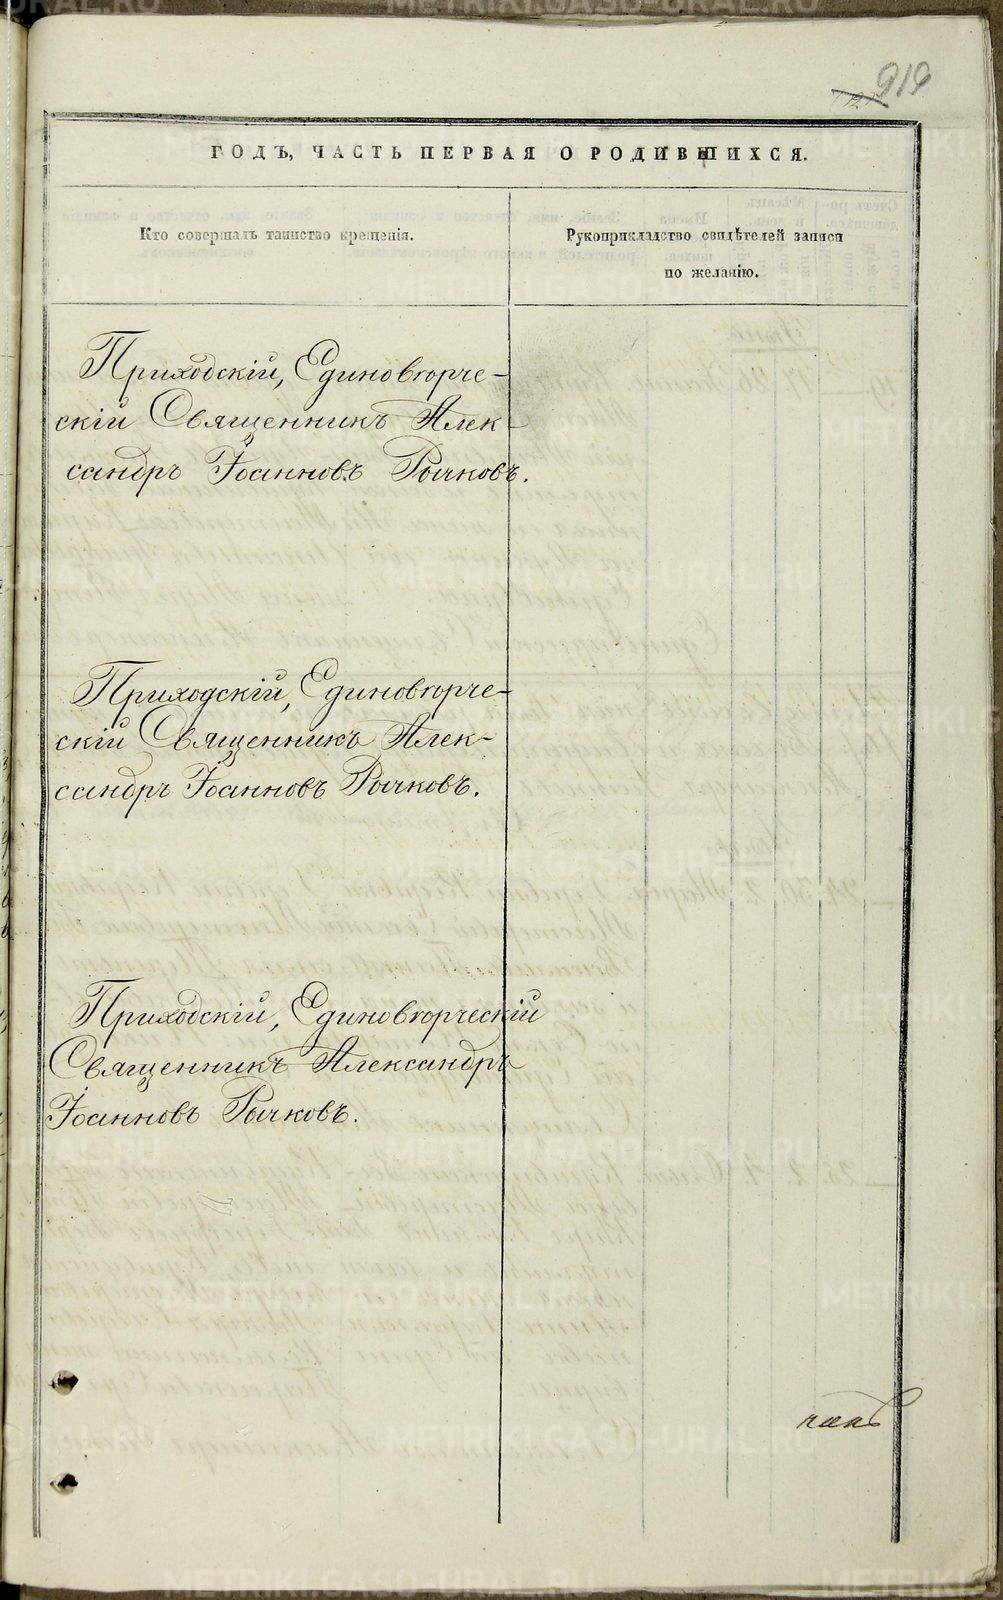 919
ГОДЪ, ЧАСТЬ ПЕРВАЯ О РОДИВШИХСЯ.
Кто совершалъ таинство крещенія.
Рукоприкладство свидѣтелей записи
по желанію.
Приходскій, Единовѣрче-
скій Священникъ Алек-
сандръ Іоанновъ Рычковъ.
Приходскій, Единовѣрче-
скій Священникъ Алек-
сандръ Іоанновъ Рычковъ.
Приходскій, Единовѣрческій
Священникъ Александръ
Іоанновъ Рычковъ.
METRIKI.GASO-URAL.RU